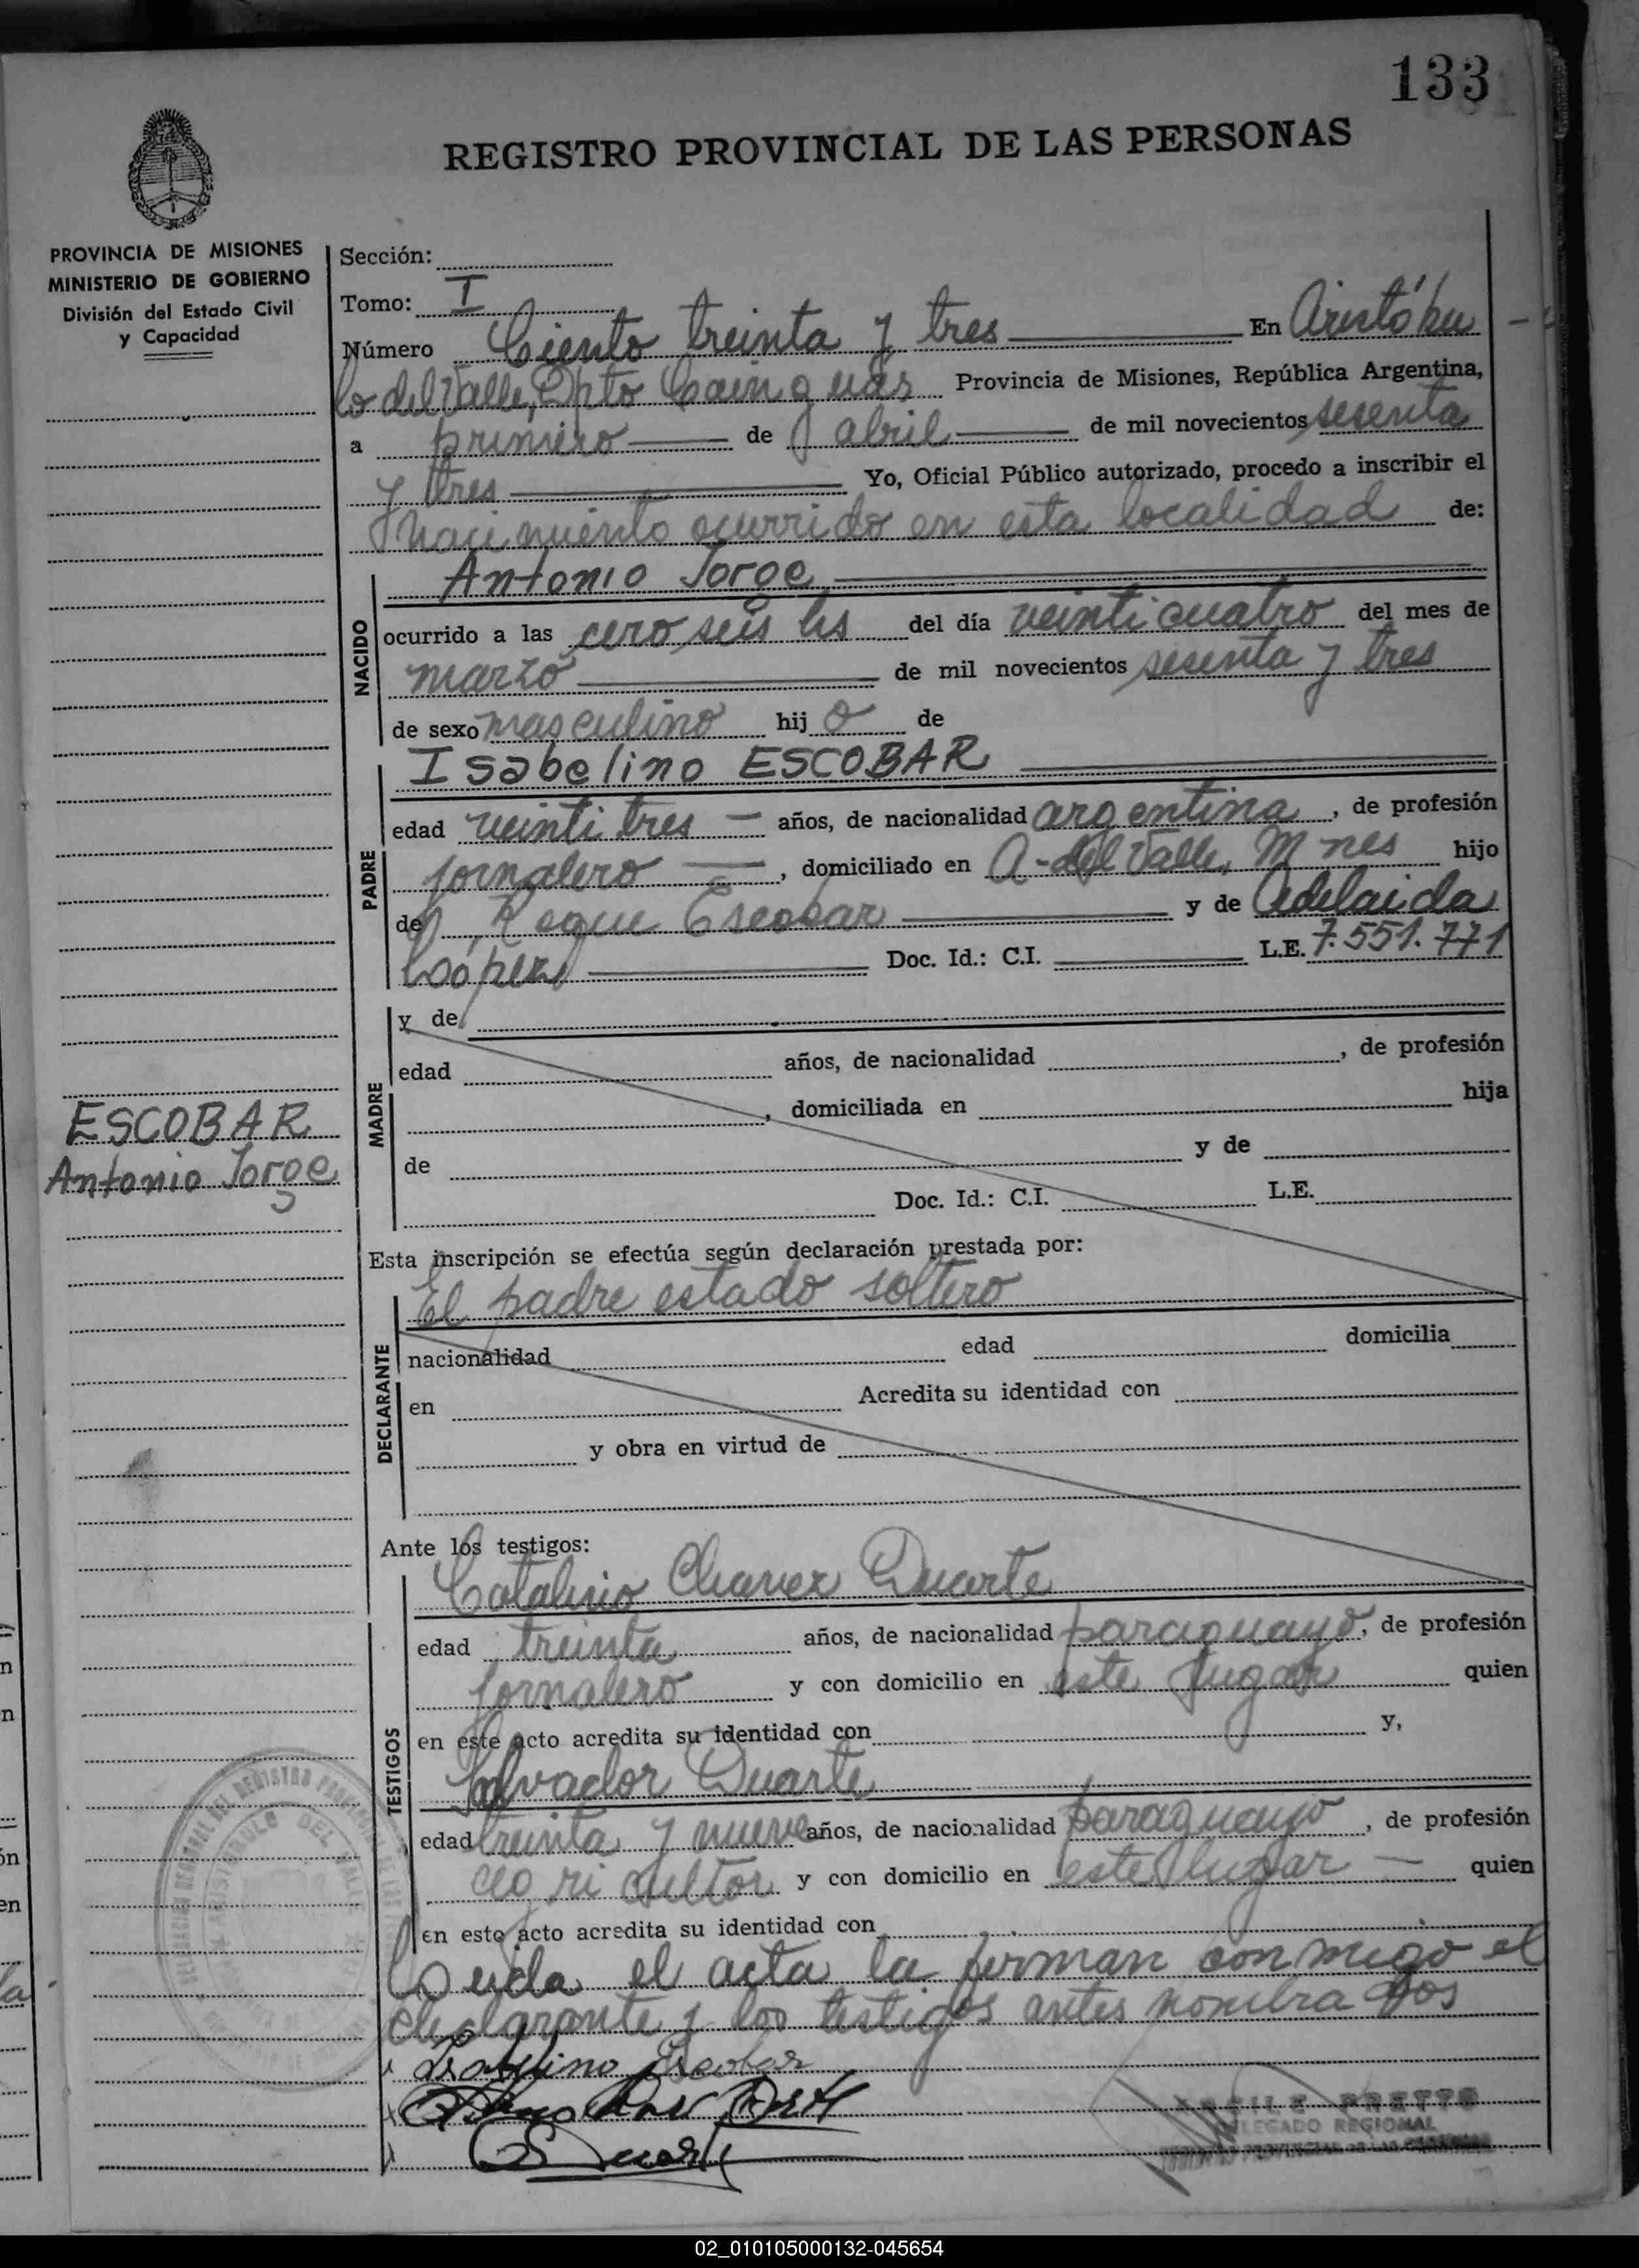 133
REGISTRO PROVINCIAL DE LAS PERSONAS
PROVINCIA DE MISIONES
MINISTERIO DE GOBIERNO
División del Estado Civil
y Capacidad
Sección:
Tomo: I
Número Ciento treinta y tres En Aristóbu
lo del Valle, Dpto Cainguás Provincia de Misiones, República Argentina,
a primero de abril de mil novecientos sesenta
y tres Yo, Oficial Público autorizado, procedo a inscribir el
nacimiento ocurrido en esta localidad de:
NACIDO
Antonio Jorge
ocurrido a las cero seis hs del día veinticuatro del mes de
marzo de mil novecientos sesenta y tres
de sexo masculino hij o de
PADRE
Isabelino ESCOBAR
edad veintitres años, de nacionalidad argentina, de profesión
jornalero, domiciliado en A-del Valle, Mnes hijo
de Roque Escobar y de Adelaida
Loópez Doc. Id.: C.I. L.E. 7.551.771
MADRE
y de
edad años, de nacionalidad , de profesión
, domiciliada en hija
de y de
Doc. Id.: C.I. L.E.
ESCOBAR
Antonio Jorge
Esta inscripción se efectúa según declaración prestada por:
El padre estado soltero
DECLARANTE
nacionalidad edad domicilia
en Acredita su identidad con
y obra en virtud de
Ante los testigos:
TESTIGOS
Catalino Chavez Duarte
edad treinta años, de nacionalidad paraguayo, de profesión
jornalero y con domicilio en este lugar quien
en este acto acredita su identidad con y,
Salvador Duarte
edad treinta y nueve años, de nacionalidad paraguayo, de profesión
agricultor y con domicilio en este lugar quien
en este acto acredita su identidad con
Leida el acta la firman conmigo el
declarante y los testigos antes nombrados
Isabelino Escobar
PRETTO
DELEGADO REGIONAL
REGISTRO PROVINCIAL DE LAS PERSONAS
ARISTOBULO DEL VALLE
02_010105000132-045654